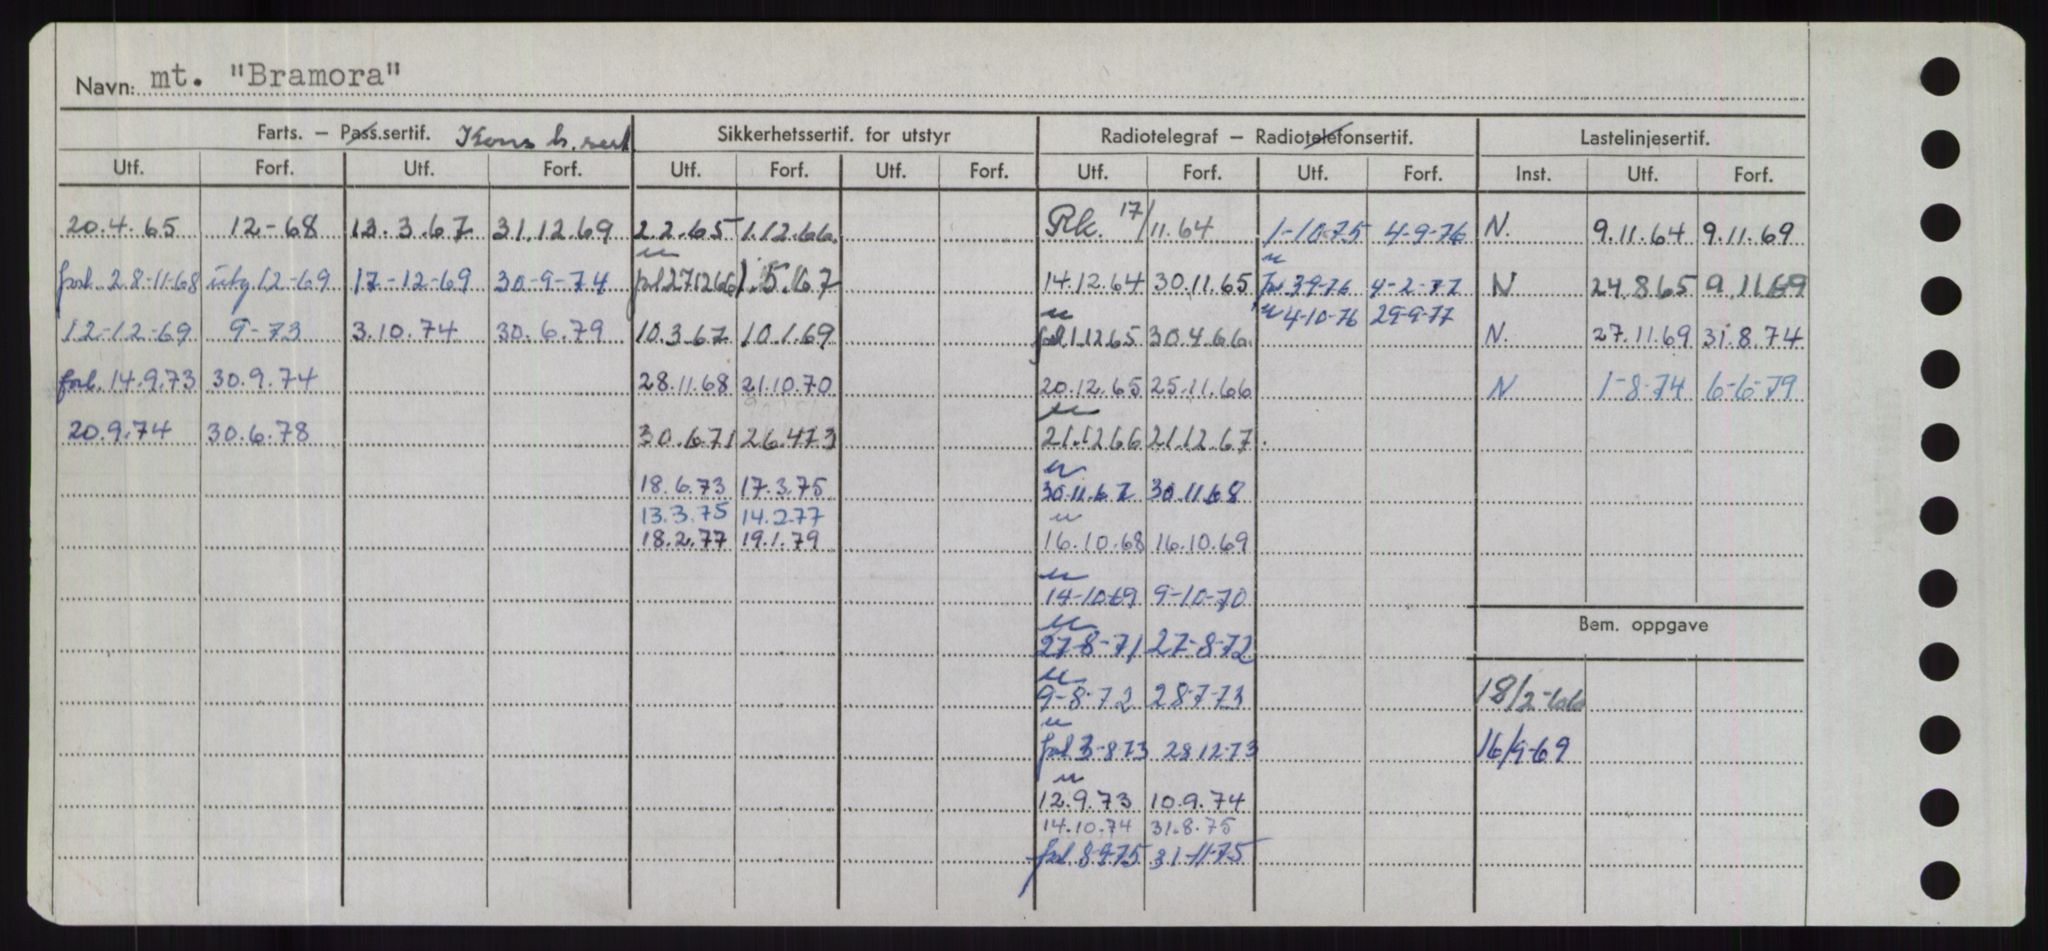 Navn: mt. "Bramora"
Farts. – Pass.sertif. Kons b. sert. Sikkerhetssertif. for utstyr Radiotelegraf – Radiotelefonsertif. Lastelinjesertif.
Utf. Forf. Utf. Forf. Utf. Forf. Utf. Forf. Utf. Forf. Utf. Forf. Inst. Utf. Forf.
20.4.65 12-68 13.3.67 31.12.69 2.2.65 1.12.66 Rk. 17/11.64 1-10-75 4-9-76 N. 9.11.64 9.11.69
forl. 28-11-68 utg 12-69 17-12-69 30-9-74 forl 27.12.66 1.5.67 14.12.64 30.11.65 forl 3-9-76 4-2-77 N 24.8.65 9.11.69
4-10-76 29-9-77
12-12-69 9-73 3.10.74 30.6.79 10.3.67 10.1.69 forl 1.12.65 30.4.66 N. 27.11.69 31.8.74
forl. 14.9.73 30.9.74 28.11.68 21.10.70 20.12.65 25.11.66 N 1-8-74 6-6-79
20.9.74 30.6.78 30.6.71 26.4.73 21.12.66 21.12.67
18.6.73 17.3.75 30.11.67 30.11.68
13.3.75 14.2.77
18.2.77 19.1.79 16.10.68 16.10.69
14-10-69 9-10-70
Bem. oppgave
27-8-71 27-8-72
9-8-72 28-7-73 18/2-66
forl 3-8-73 28.12-73 16/9-69
12.9.73 10.9.74
14.10.74 31.8.75
forl. 8-9-75 31-11-75